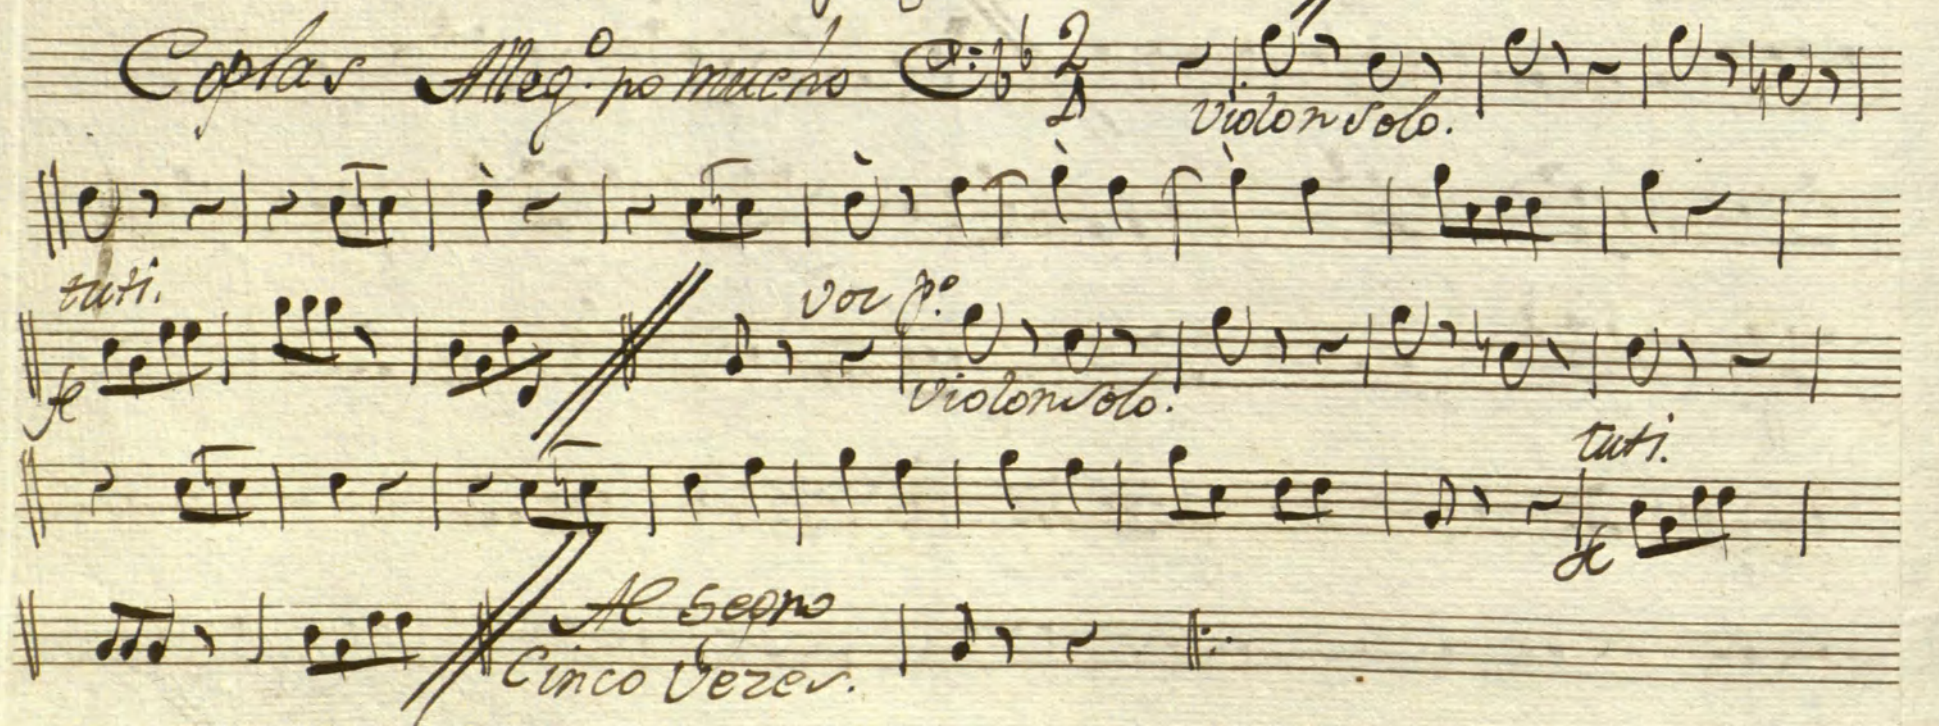 Coplas Alleg.º no mucho 2/4
violon solo.
tuti.
voz pº.
violon solo.
tuti.
Al Segno
Cinco Vezes.